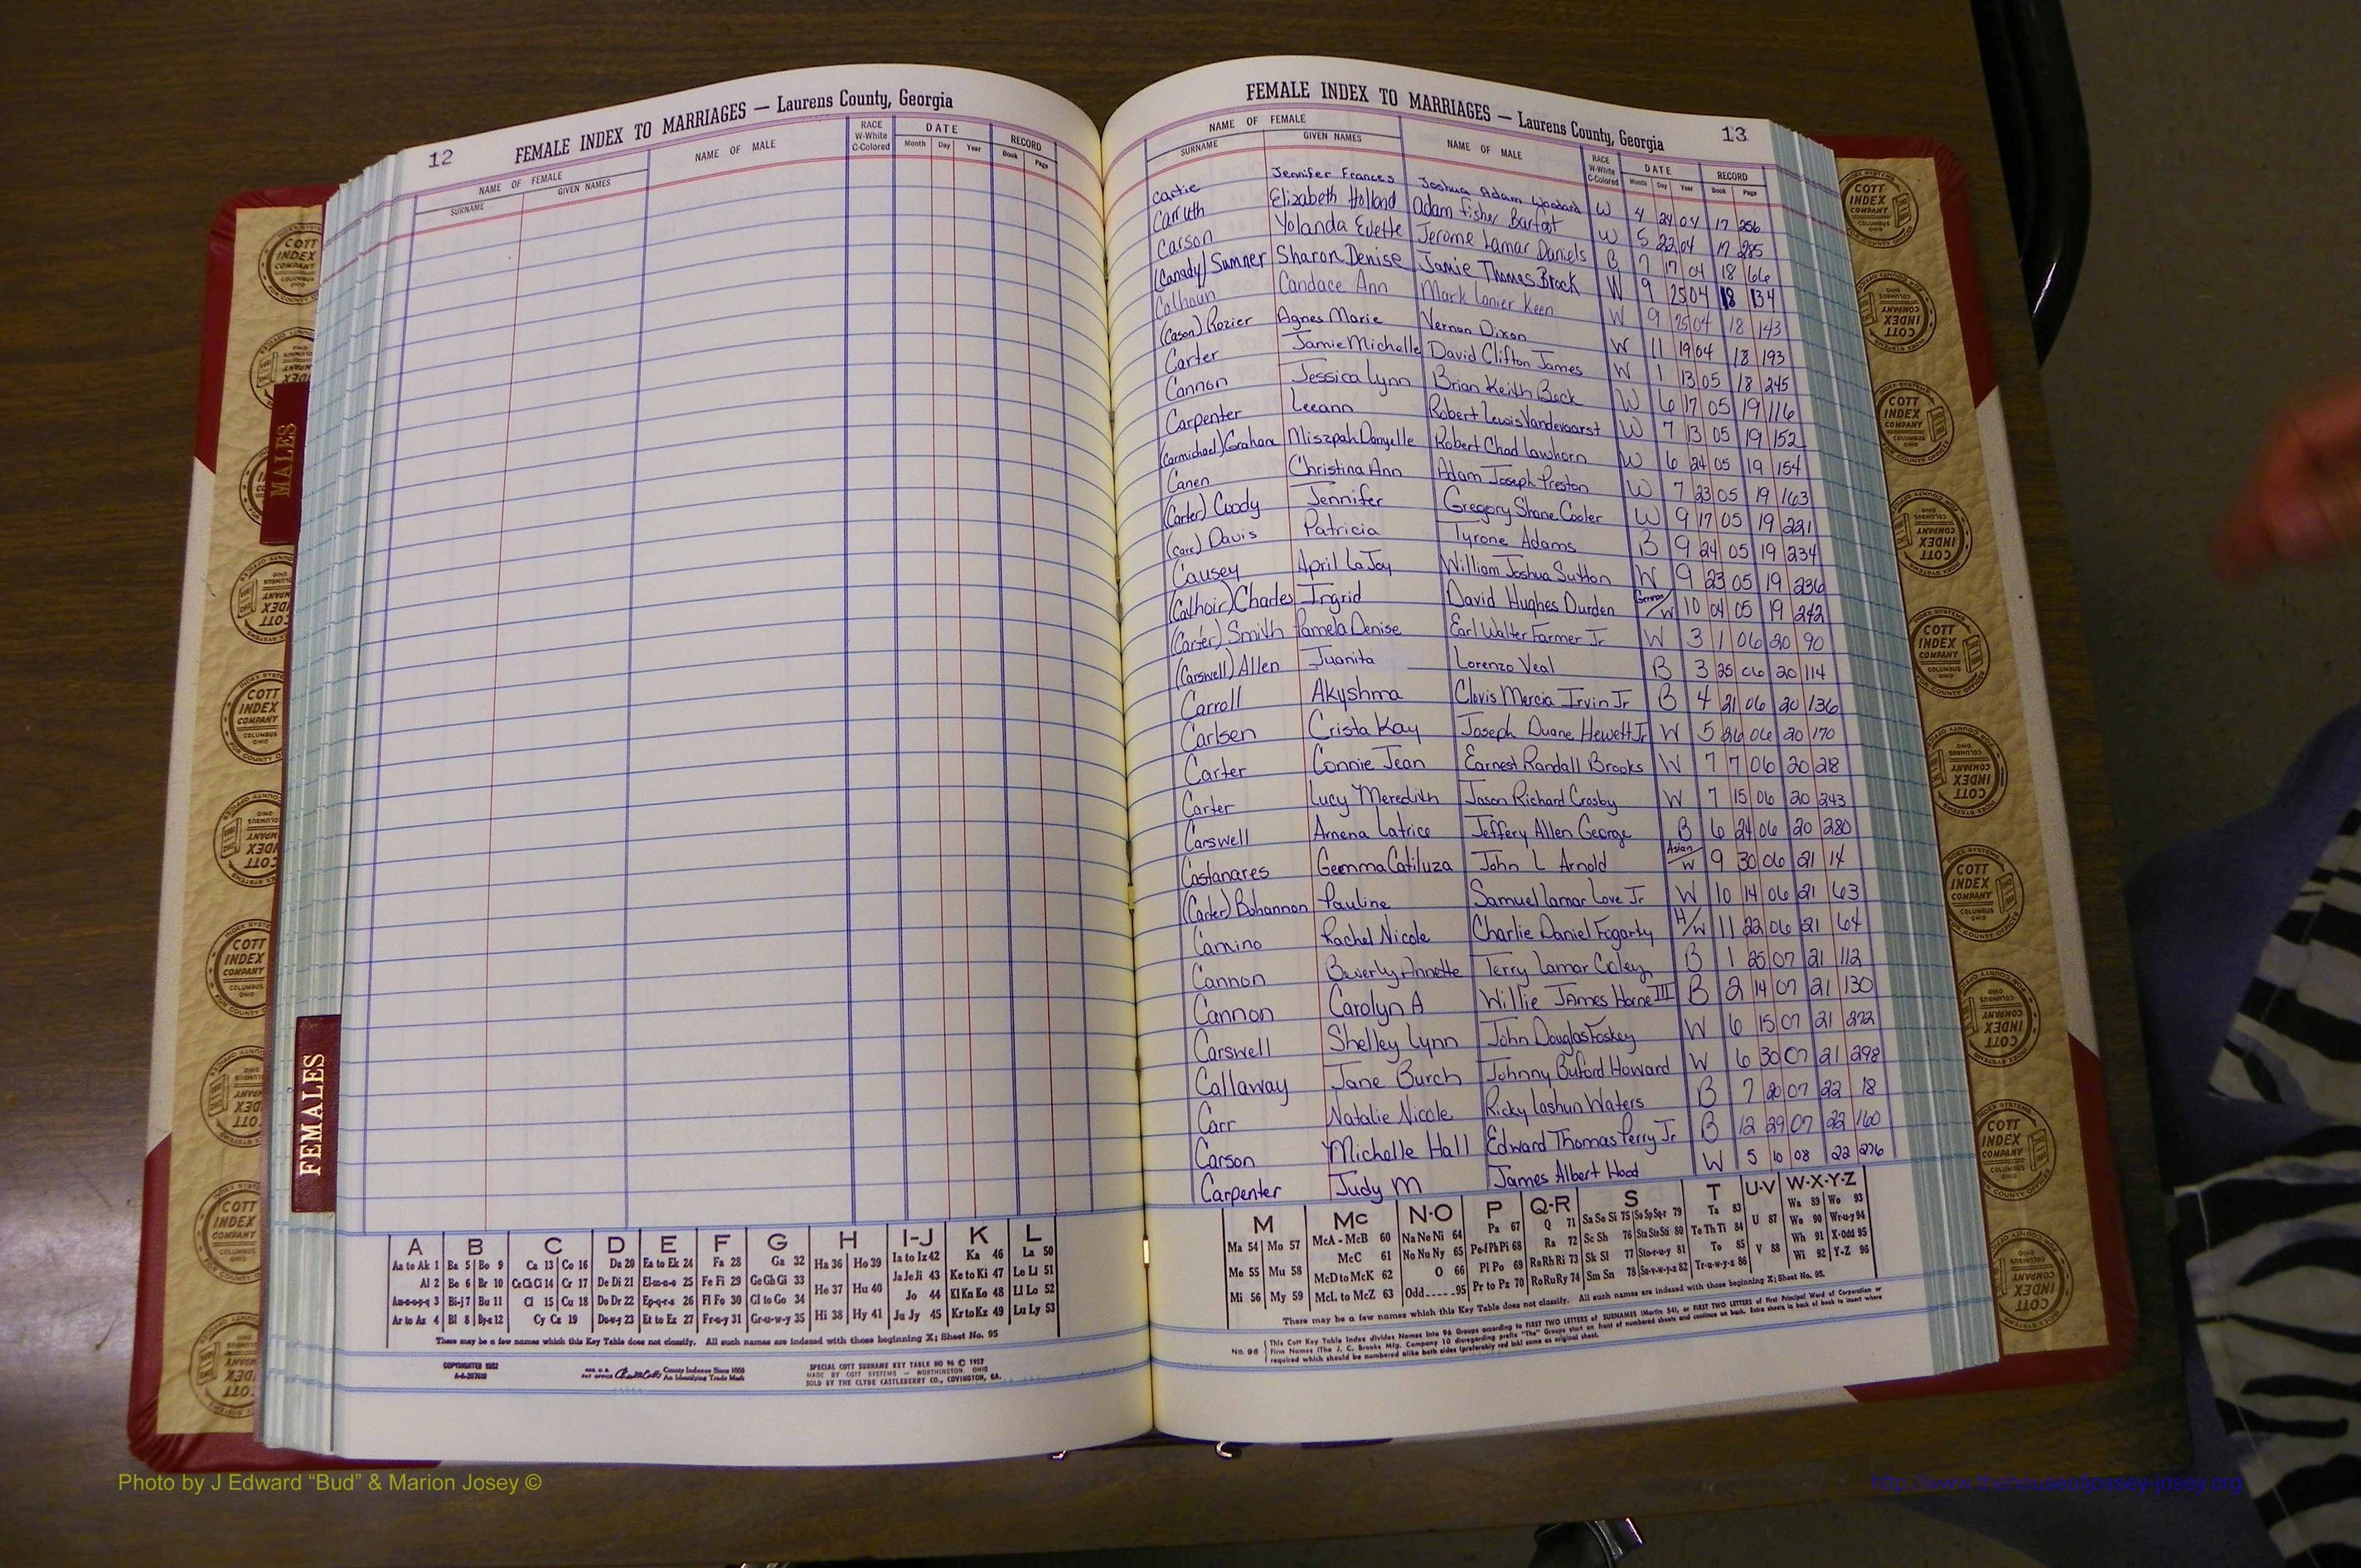 12 FEMALE INDEX TO MARRIAGES — Laurens County, Georgia
NAME OF FEMALE NAME OF MALE RACE W-White C-Colored DATE RECORD
SURNAME GIVEN NAMES Month Day Year Book Page
FEMALE INDEX TO MARRIAGES — Laurens County, Georgia 13
NAME OF FEMALE NAME OF MALE RACE W-White C-Colored DATE RECORD
SURNAME GIVEN NAMES Month Day Year Book Page
Cartie Jennifer Frances Joshua Adam Woodard W 4 24 04 17 256
Carruth Elizabeth Holland Adam Fisher Barfoot W 5 22 04 17 285
Carson Yolanda Evette Jerome Lamar Daniels B 7 17 04 18 66
(Canady) Sumner Sharon Denise Jamie Thomas Brock W 9 25 04 18 134
Calhoun Candace Ann Mark Lanier Keen W 9 25 04 18 143
(Cason) Rozier Agnes Marie Vernon Dixon W 11 19 04 18 193
Carter Jamie Michelle David Clifton James W 1 13 05 18 245
Cannon Jessica Lynn Brian Keith Beck W 6 17 05 19 116
Carpenter Leeann Robert Lewis Vandevoorst W 7 13 05 19 152
(Carmichael) Graham Miszpah Danyelle Robert Chad Lawhorn W 6 24 05 19 154
Canen Christina Ann Adam Joseph Preston W 7 23 05 19 163
(Carter) Coody Jennifer Gregory Shane Cooler W 9 17 05 19 221
(Carr) Davis Patricia Tyrone Adams B 9 24 05 19 234
Causey April LaJoy William Joshua Sutton W 9 23 05 19 236
(Cathoir) Charles Ingrid David Hughes Durden German/W 10 04 05 19 242
(Carter) Smith Pamela Denise Earl Walter Farmer Jr W 3 1 06 20 90
(Carswell) Allen Juanita Lorenzo Veal B 3 25 06 20 114
Carroll Akyshma Clovis Mercia Irvin Jr B 4 21 06 20 136
Carlsen Crista Kay Joseph Duane Hewett Jr W 5 26 06 20 170
Carter Connie Jean Earnest Randall Brooks W 7 7 06 20 218
Carter Lucy Meredith Jason Richard Crosby W 7 15 06 20 243
Carswell Amena Latrice Jeffery Allen George B 6 24 06 20 280
Castanares Geemma Catiluza John L Arnold Asian/W 9 30 06 21 14
(Carter) Bohannon Pauline Samuel Lamar Love Jr W 10 14 06 21 63
Camino Rachel Nicole Charlie Daniel Fogarty H/W 11 22 06 21 64
Cannon Beverly Annette Terry Lamar Coley B 1 25 07 21 112
Cannon Carolyn A Willie James Horne III B 2 14 07 21 130
Carswell Shelley Lynn John Douglas Foskey W 6 15 07 21 272
Callaway Jane Burch Johnny Buford Howard W 6 30 07 21 298
Carr Natalie Nicole Ricky Lashun Waters B 7 20 07 22 18
Carson Michelle Hall Edward Thomas Perry Jr B 12 29 07 22 160
Carpenter Judy M James Albert Hood W 5 10 08 22 276
A B C D E F G H I-J K L
Aa to Ak 1 Ba 5 Bo 9 Ca 13 Co 16 Da 20 Ea to Ek 24 Fa 28 Ga 32 Ha 36 Ho 39 Ia to Iz 42 Ka 46 La 50
Al 2 Be 6 Br 10 Ce Ch Ci 14 Cr 17 De Di 21 El-m-n-o 25 Fe Fi 29 Ge Gh Gi 33 He 37 Hu 40 Ja Je Ji 43 Ke to Ki 47 Le Li 51
Am-n-o-p-q 3 Bi-j 7 Bu 11 Cl 15 Cu 18 Do Dr 22 Ep-q-r-s 26 Fl Fo 30 Gl to Go 34 Hi 38 Hy 41 Jo 44 Kl Kn Ko 48 Ll Lo 52
Ar to Az 4 Bl 8 By-z 12 Cy Cz 19 Du-w-y 23 Et to Ez 27 Fr-u-y 31 Gr-u-w-y 35 Ju Jy 45 Kr to Kz 49 Lu Ly 53
There may be a few names which this Key Table does not classify. All such names are indexed with those beginning X; Sheet No. 95
COPYRIGHTED 1952
County Indexes Since 1888
An Identifying Trade Mark
SPECIAL COTT SURNAME KEY TABLE NO 96 © 1957
MADE BY COTT SYSTEMS — WORTHINGTON, OHIO
SOLD BY THE CLYDE CASTLEBERRY CO., COVINGTON, GA.
M Mc N-O P Q-R S T U-V W-X-Y-Z
Ma 54 Mo 57 McA - McB 60 Na Ne Ni 64 Pa 67 Q 71 Sa Se Si 75 So Sp Sq-r 79 Ta 83 U 87 Wa 89 Wo 93
Me 55 Mu 58 McC 61 No Nu Ny 65 Pe-f Ph Pi 68 Ra 72 Sc Sh 76 Sta Ste Sti 80 Te Th Ti 84 V 88 We 90 Wr-u-y 94
Mi 56 My 59 McD to McK 62 O 66 Pl Po 69 Re Rh Ri 73 Sk Sl 77 Sto-r-u-y 81 To 85 Wh 91 X-Odd 95
McL to McZ 63 Odd 95 Pr to Pz 70 Ro Ru Ry 74 Sm Sn 78 Su-v-w-y-z 82 Tr-u-w-y-z 86 Wi 92 Y-Z 96
There may be a few names which this Key Table does not classify. All such names are indexed with those beginning X; Sheet No. 95.
No. 96 This Cott Key Table Index divides Names into 96 Groups according to FIRST TWO LETTERS of SURNAMES (Martin 54), or FIRST TWO LETTERS of First Principal Word of Corporation or
Firm Names (The J. C. Brooks Mfg. Company 10 disregarding prefix "The" Groups start on front of numbered sheets and continue on back. Extra sheets in back of book to insert where
required which should be numbered alike both sides (preferably red ink) same as original sheet.
MALES
FEMALES
COTT INDEX COMPANY COLUMBUS OHIO
Photo by J Edward “Bud” & Marion Josey ©
http://www.thehouseofjossey-josey.org